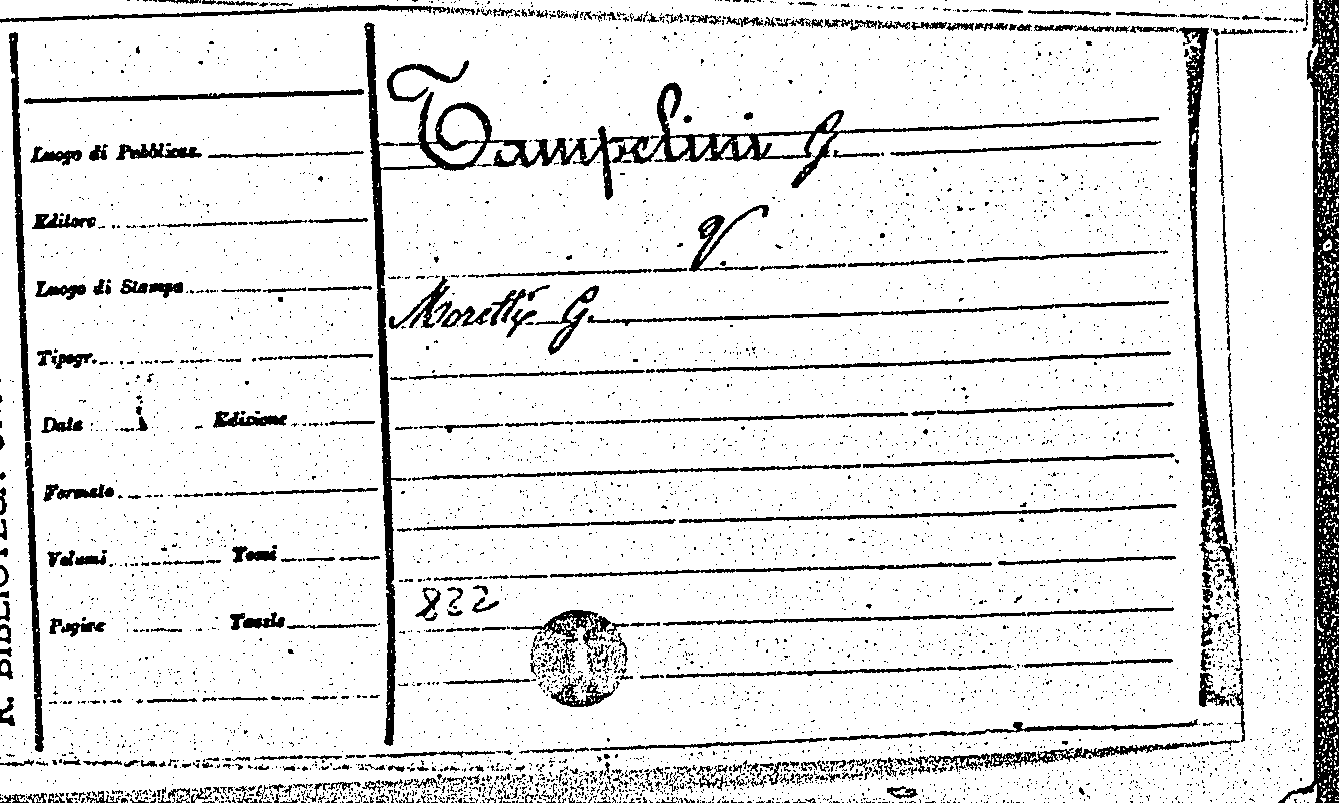 Tampelini G.
V.
Moretti G.
Luogo di Pubblicaz.
Editore
Luogo di Stampa
Tipogr.
Data Edizione
Formato
Volumi Tomi
Pagine Tavole
822
R. BIBLIOTECA